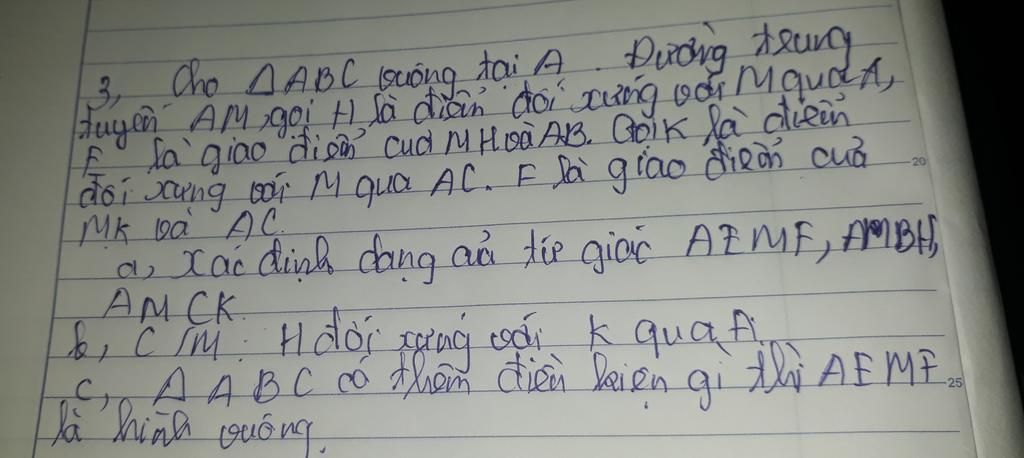 3, Cho ΔABC vuông tại A. Đường trung
tuyến AM, gọi H là điểm đối xứng với M qua A,
E là giao điểm của MH và AB. Gọi K là điểm
đối xứng với M qua AC. F là giao điểm của
20
MK và AC.
a, Xác định dạng của tứ giác AEMF, AMBH,
AMCK.
b, C/M: H đối xứng với K qua A.
c, Δ ABC có thêm điều kiện gì thì AEMF
25
là hình vuông.